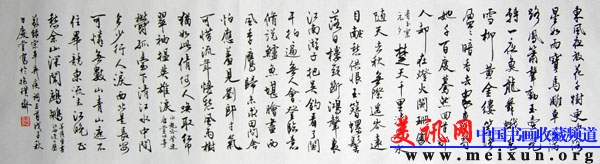 東風夜放花千樹更吹落
星如雨寶馬雕車香滿
路鳳簫聲動玉壺光
轉一夜魚龍舞蛾兒
雪柳黃金縷笑語
盈盈暗香去眾裏尋
她千百度驀然回首
人卻在燈火闌珊處
青玉案 元夕 楚天千里清秋水
隨天去秋無際遙岑遠
目獻愁供恨玉簪螺髻
落日樓頭斷鴻聲裏
江南游子把吳鉤看了闌
干拍遍無人會登臨意
休說鱸魚堪膾盡西
風季鷹歸未求田問舍
怕應羞見劉郎才氣
可惜流年憂愁風雨樹
猶如此倩何人喚取紅
巾翠袖揾英雄淚
鬱孤臺下清江水中間
多少行人淚西北是長安
可憐無數山青山遮不
住畢竟東流去江晚正
愁余山深聞鷓鴣
美讯网
中国书画收藏频道
www.meixun.com